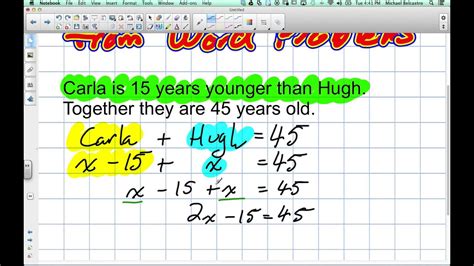 Notebook File Edit View Insert Format Tools
Tue 4:41 PM Michael Belcastro
Untitled
from Word Problems
Carla is 15 years younger than Hugh.
Together they are 45 years old.
Carla + Hugh = 45
x - 15 + x = 45
x - 15 + x = 45
2x - 15 = 45